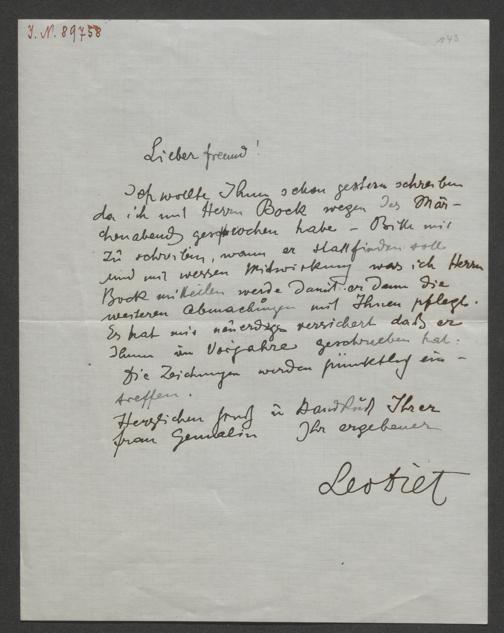 J. N. 89758
143
Lieber Freund!
Ich wollte Ihnen schon gestern schreiben
da ich mit Herrn Bock wegen des Mär-
chenabends gesprochen habe – Bitte mir
zu schreiben, wann er stattfinden soll
und mit wessen Mitwirkung was ich Herrn
Bock mitteilen werde damit er dann die
weiteren Abmachungen mit Ihnen pflegt.
Es hat mir neuerdings versichert daß er
Ihnen im Vorjahre geschrieben hat.
Die Zeichnungen werden pünktlich ein-
treffen.
Herzlichen Gruß u Handkuß Ihrer
Frau Gemalin Ihr ergebener
Leo Diet